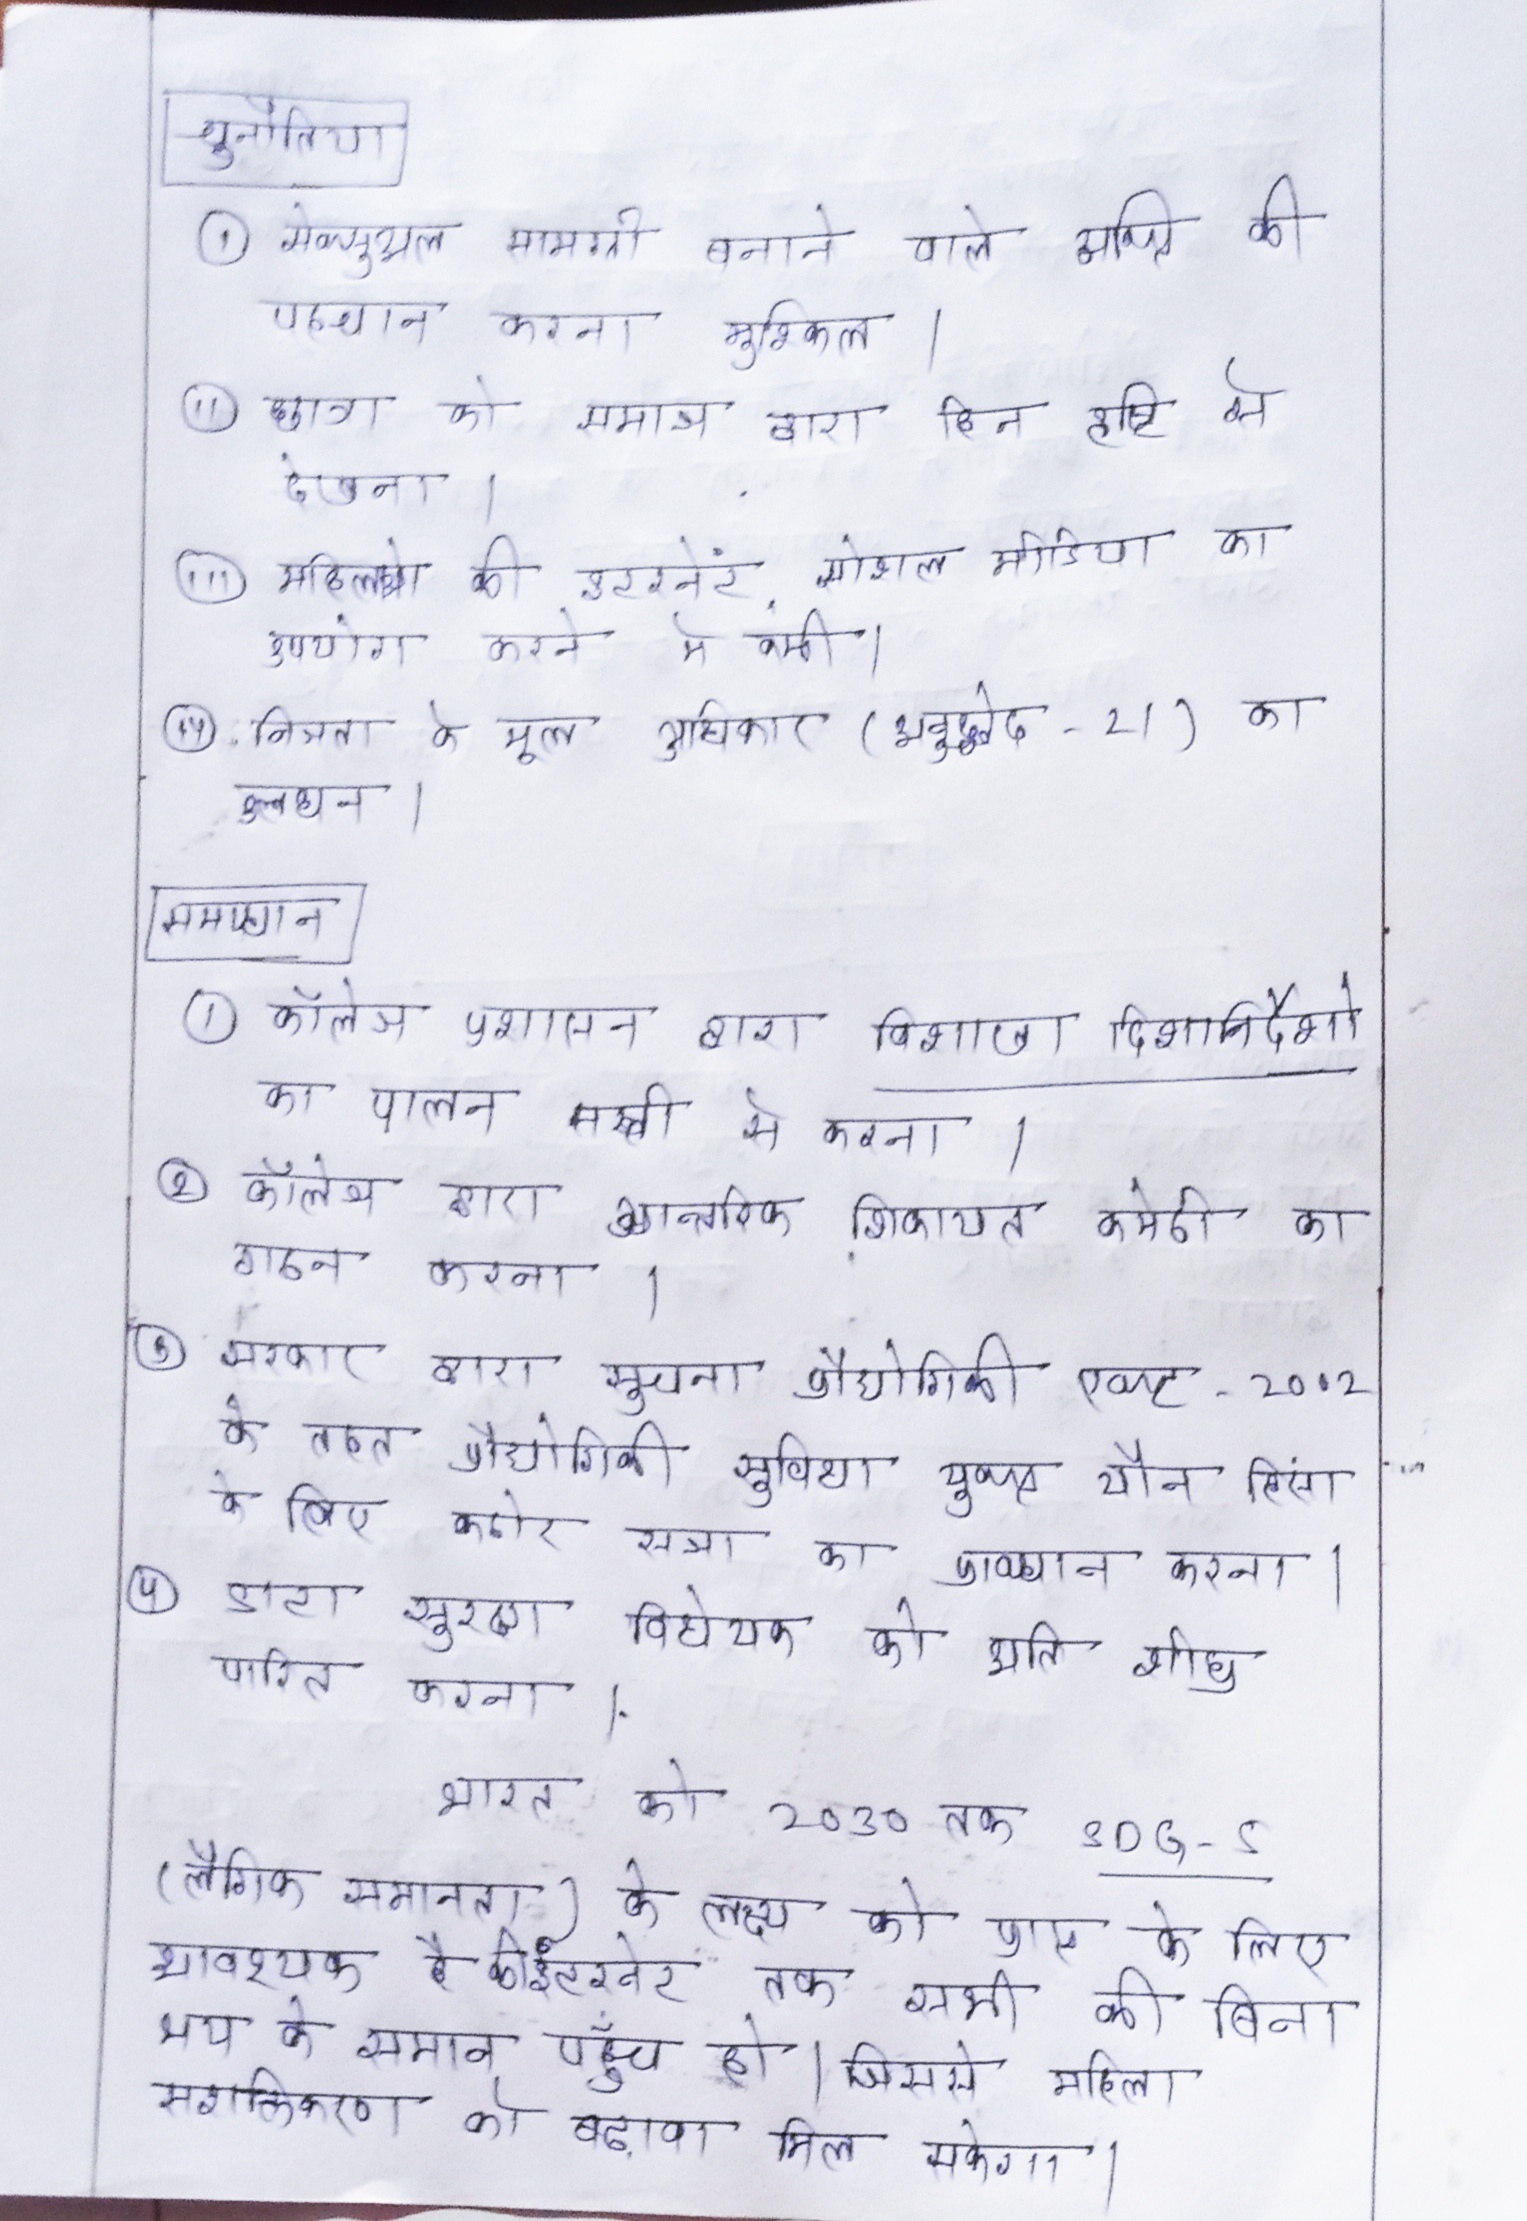 चुनौतिया
① सेक्सुअल सामग्री बनाने वाले व्यक्ति की
पहचान करना मुश्किल ।
(11) छात्रा को समाज द्वारा हिन दृष्टि से
देखना ।
(111) महिलाओ की इंटरनेट, सोशल मीडिया का
उपयोग करने मे कमी ।
निजता के मूल अधिकार (अनुच्छेद - 21) का
उल्लघन ।
समाधान
① कॉलेज प्रशासन द्वारा विशाखा दिशानिर्देशो
का पालन सख्ती से करना ।
② कॉलेज द्वारा आन्तरिक शिकायत कमेटी का
गठन करना ।
③ सरकार द्वारा सूचना प्रौद्योगिकी एक्ट - 2002
के तहत प्रौद्योगिकी सुविधा युक्त यौन हिंसा
के लिए कठोर सजा का प्रावधान करना ।
④ डाटा सुरक्षा विधेयक को अति शीघ्र
पारित करना ।
भारत को 2030 तक SDG-5
(लैगिक समानता) के लक्ष्य को प्राप्त के लिए
आवश्यक है की इंटरनेट तक सभी की बिना
भय के समान पहुँच हो । जिससे महिला
सशक्तिकरण को बढ़ावा मिल सकेगा ।